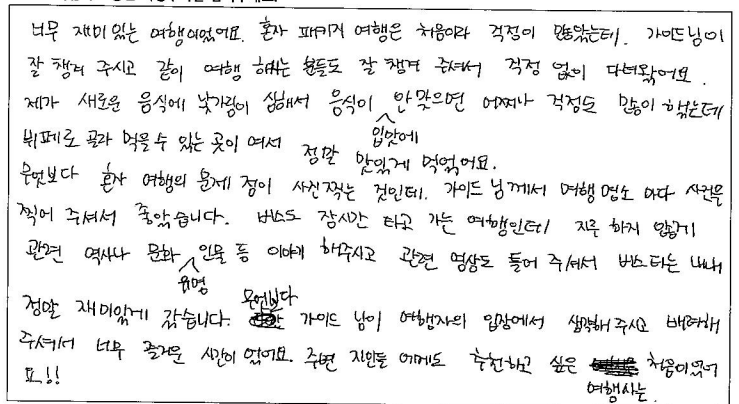 너무 재미있는 여행이었어요. 혼자 패키지 여행은 처음이라 걱정이 많았는데. 가이드님이
잘 챙겨 주시고 같이 여행 하시는 분들도 잘 챙겨 주셔서 걱정 없이 다녀왔어요.
제가 새로운 음식에 낯가림이 심해서 음식이 입맛에 안맞으면 어쩌나 걱정도 많이 했는데
뷔페로 골라 먹을 수 있는 곳이 여서 정말 맛있게 먹었어요.
무엇보다 혼자 여행의 문제 점이 사진찍는 것인데. 가이드 님께서 여행 명소 마다 사진을
찍어 주셔서 좋았습니다. 버스도 장시간 타고 가는 여행인데 지루 하지 않게
관련 역사나 문화 유명 인물 등 이야기 해주시고 관련 영상도 틀어 주셔서 버스타는 내내
정말 재미있게 갔습니다. 무엇보다 가이드 님이 여행자의 입장에서 생각해 주시고 배려해
주셔서 너무 즐거운 시간이 었어요. 주변 지인들 에게도 추천하고 싶은 여행사는 처음이었어
요!!